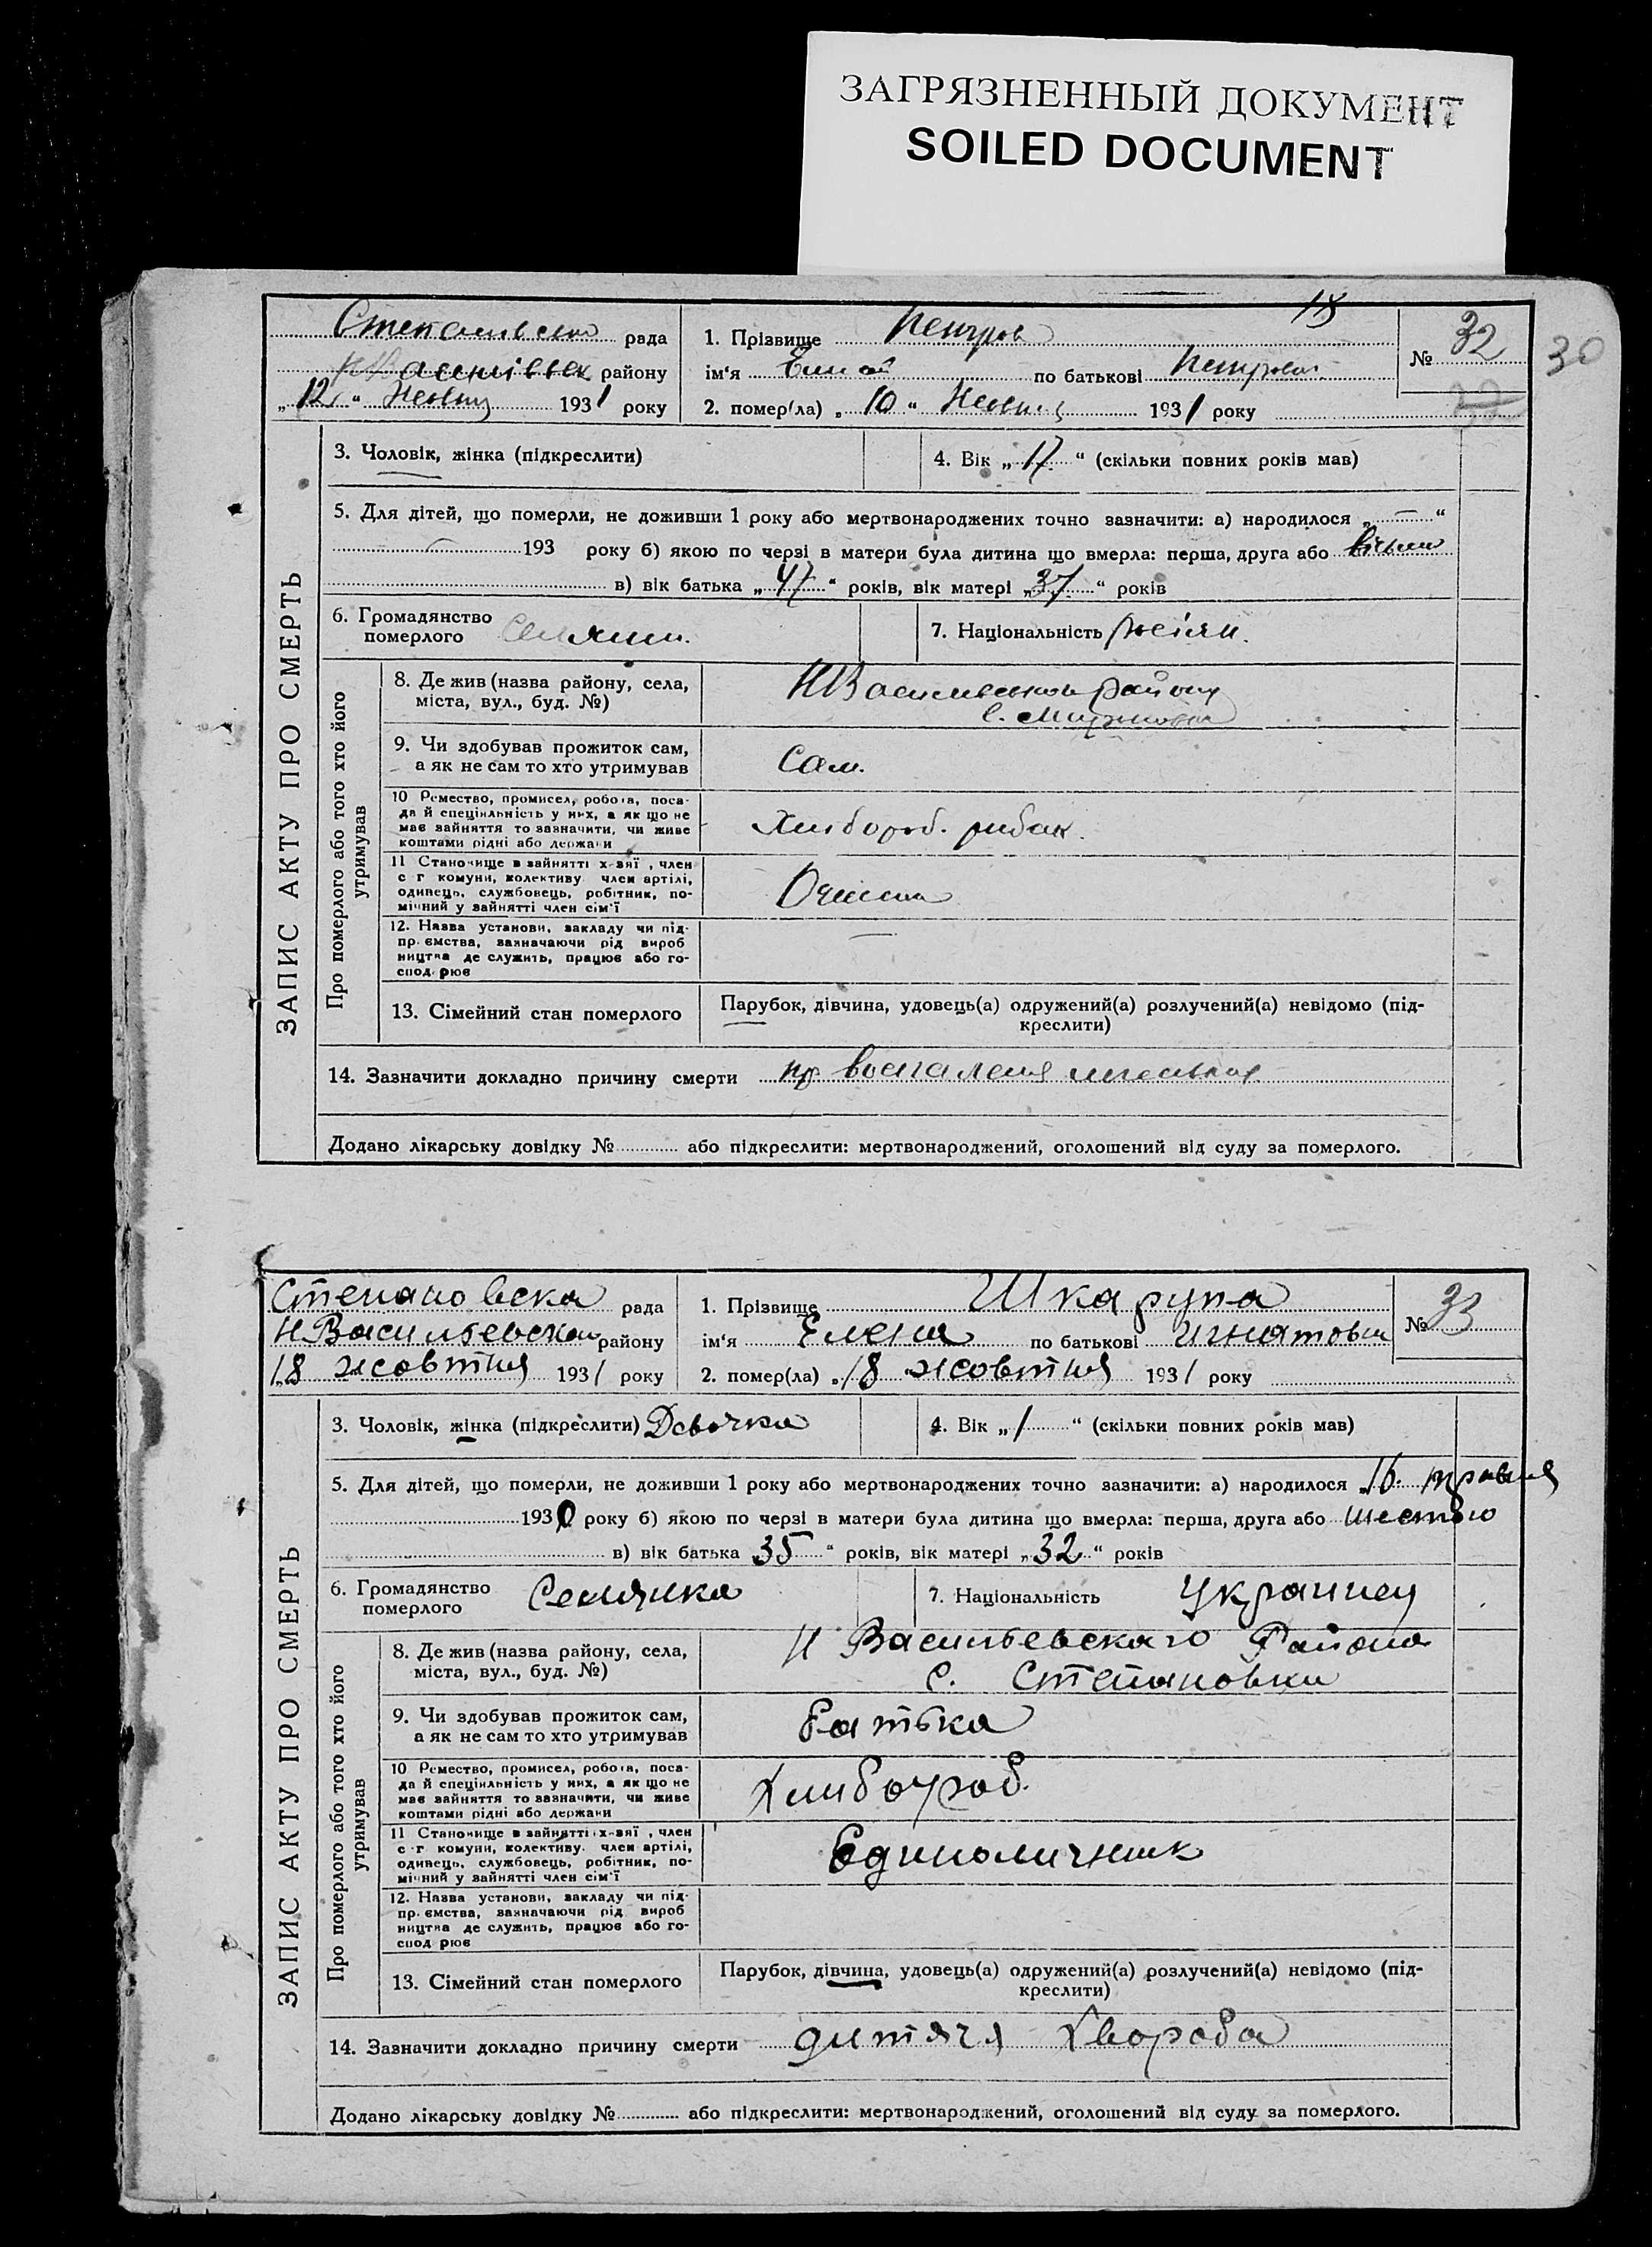 ЗАГРЯЗНЕННЫЙ ДОКУМЕНТ
SOILED DOCUMENT
18
рада
1. Прізвище Петров
№ 32
30
району
ім‘я по батькові Петрович
„12“ 1931 року
2. помер(ла) „10“ 1931 року
ЗАПИС АКТУ ПРО СМЕРТЬ
3. Чоловік, жінка (підкреслити)
4. Вік „17“ (скільки повних років мав)
5. Для дітей, що померли, не доживши 1 року або мертвонароджених точно зазначити: а) народилося „—“
193 року б) якою по черзі в матери була дитина що вмерла: перша, друга або
в) вік батька „47“ років, вік матері „37“ років
6. Громадянство
померлого
7. Національність
Про померлого або того хто його
утримував
8. Де жив (назва району, села,
міста, вул., буд. №)
НВасильевского району
с.
9. Чи здобував прожиток сам,
а як не сам то хто утримував
Сам.
10 Ремество, промисел, робота, поса-
да й спеціяльність у них, а як що не
має зайняття то зазначити, чи живе
коштами рідні або держави
Хлибороб. рибак.
11 Становище в зайнятті х-вяї, член
с г комуни, колективу член артілі,
одинець, службовець, робітник, по-
мічний у зайнятті член сім‘ї
12. Назва установи, закладу чи під-
пр. ємства, зазначаючи рід вироб
ництва де служить, працює або го-
спод рює
—
13. Сімейний стан померлого
Парубок, дівчина, удовець(а) одружений(а) розлучений(а) невідомо (під-
креслити)
14. Зазначити докладно причину смерти
Додано лікарську довідку № або підкреслити: мертвонароджений, оголошений від суду за померлого.
Степановска рада
1. Прізвище Шкарупа
№ 33
Н Васильевском району
ім‘я Елена по батькові Игнятовна
„18 жовтня 1931 року
2. помер(ла) „18 жовтня 1931 року
ЗАПИС АКТУ ПРО СМЕРТЬ
3. Чоловік, жінка (підкреслити) Девочка
4. Вік „1“ (скільки повних років мав)
5. Для дітей, що померли, не доживши 1 року або мертвонароджених точно зазначити: а) народилося „16. травня
1930 року б) якою по черзі в матери була дитина що вмерла: перша, друга або шестою
в) вік батька 35“ років, вік матері „32“ років
6. Громадянство
померлого
Селянка
7. Національність Украинец
Про померлого або того хто його
утримував
8. Де жив (назва району, села,
міста, вул., буд. №)
Н Васильевскаго Района
с. Степановки
9. Чи здобував прожиток сам,
а як не сам то хто утримував
Батька
10 Ремество, промисел, робота, поса-
да й спеціяльність у них, а як що не
має зайняття то зазначити, чи живе
коштами рідні або держави
Хлибороб.
11 Становище в зайнятті х-вяї, член
с г комуни, колективу член артілі,
одинець, службовець, робітник, по-
мічний у зайнятті член сім‘ї
Единоличник
12. Назва установи, закладу чи під-
пр. ємства, зазначаючи рід вироб
ництва де служить, працює або го-
спод рює
13. Сімейний стан померлого
Парубок, дівчина, удовець(а) одружений(а) розлучений(а) невідомо (під-
креслити)
14. Зазначити докладно причину смерти дитяча хвороба
Додано лікарську довідку № або підкреслити: мертвонароджений, оголошений від суду за померлого.